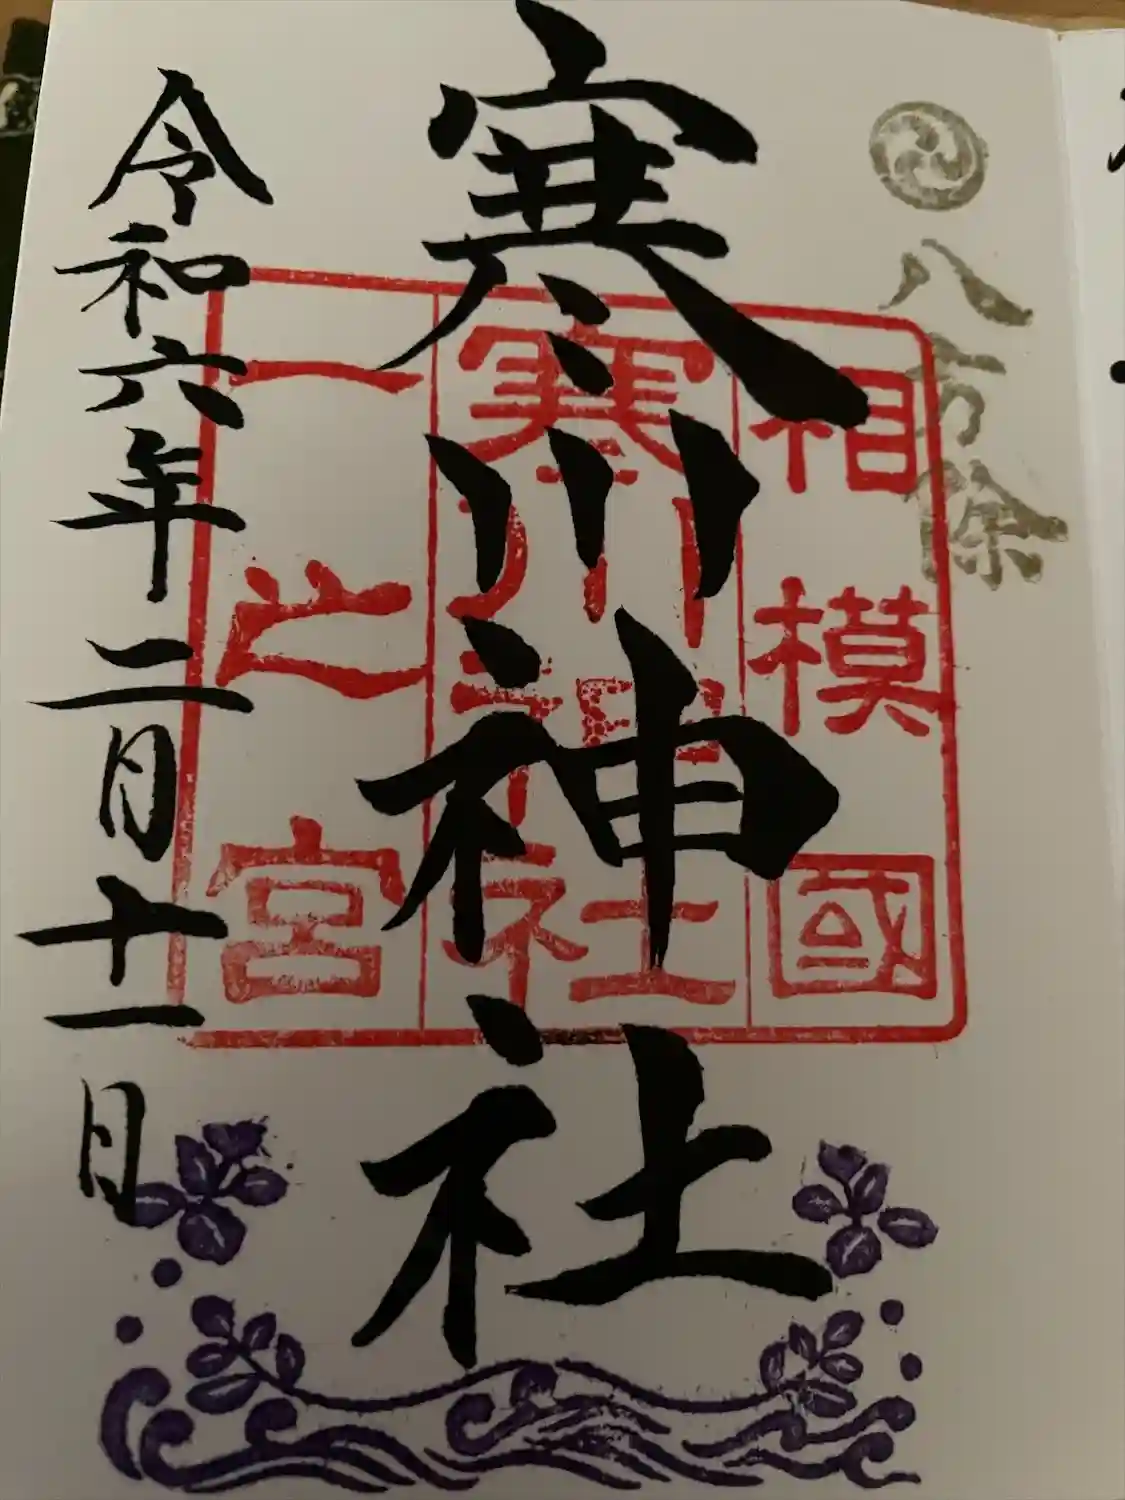 八方除
寒川神社
相模國
寒川神社
一之宮
令和六年二月十一日